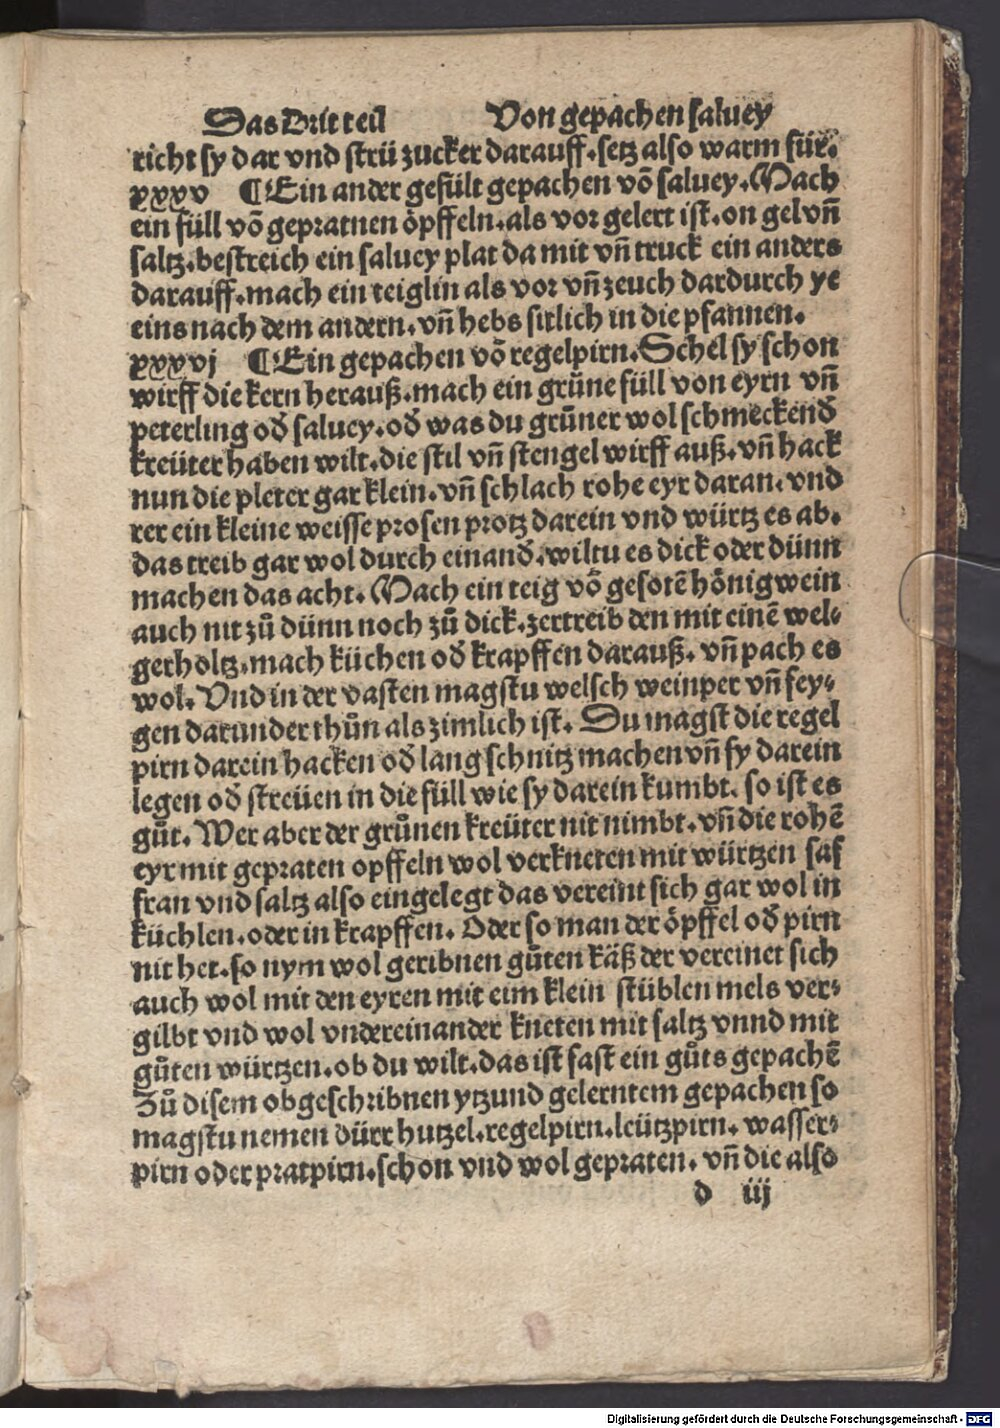 Das Drit teil Von gepachen saluey
richt sy dar vnd strü zucker darauff. setz also warm für.
xxxv ¶ Ein ander gefült gepachen võ saluey. Mach
ein füll võ gepratnen öpffeln. als vor gelert ist. on gel vñ
saltz. bestreich ein saluey plat da mit vñ truck ein anders
darauff. mach ein teiglin als vor vñ zeuch dardurch ye
eins nach dem andern. vñ hebs sitlich in die pfannen.
xxxvj ¶ Ein gepachen võ regelpirn. Schel sy schon
wirff die kern herauß. mach ein grüne füll von eyrn vñ
peterling oď saluey. oď was du grüner wol schmeckenď
kreüter haben wilt. die stil vñ stengel wirff auß. vñ hack
nun die pleter gar klein. vñ schlach rohe eyr daran. vnd
rer ein kleine weisse prosen protz darein vnd würtz es ab.
das treib gar wol durch einanď. wiltu es dick oder dünn
machen das acht. Mach ein teig võ gesotẽ hönigwein
auch nit zů dünn noch zů dick. zertreib den mit einẽ wel-
gerholtz. mach küchen oď krapffen darauß. vñ pach es
wol. Vnd in der vasten magstu welsch weinper vñ fey-
gen darunder thůn als zimlich ist. Du magst die regel
pirn darein hacken oď lang schnitz machen vñ sy darein
legen oď streüen in die füll wie sy darein kumbt. so ist es
gůt. Wer aber der grůnen kreüter nit nimbt. vñ die rohẽ
eyr mit gepraten opffeln wol verkneten mit würtzen saf
fran vnd saltz also eingelegt das vereint sich gar wol in
küchlen. oder in krapffen. Oder so man der öpffel oď pirn
nit het. so nym wol geribnen gůten käß der vereinet sich
auch wol mit den eyren mit eim klein stüblen mels ver-
gilbt vnd wol vndereinander kneten mit saltz vnnd mit
gůten würtzen. ob du wilt. das ist fast ein gůts gepachẽ
Zů disem obgeschribnen ytzund gelerntem gepachen so
magstu nemen dürr hutzel. regelpirn. leützpirn. wasser-
pirn oder pratpirn. schon vnd wol gepraten. vñ die also
d iij
Digitalisierung gefördert durch die Deutsche Forschungsgemeinschaft - DFG